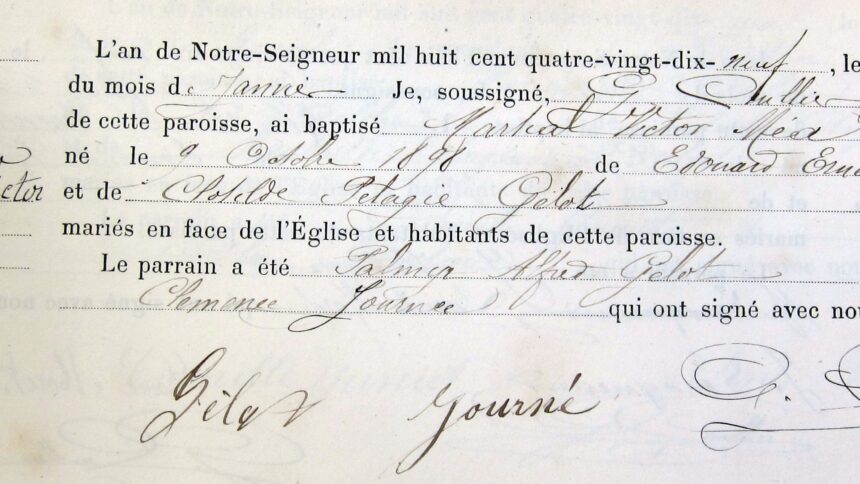 L'an de Notre-Seigneur mil huit cent quatre-vingt-dix-neuf, le
du mois de Janvier Je, soussigné, G
de cette paroisse, ai baptisé Martial Victor Méa
né le 9 Octobre 1898 de Edouard
ctor et de Clotilde Pelagie Gelot
mariés en face de l'Église et habitants de cette paroisse.
Le parrain a été Palmyr Alfred Gelot
Clemence Journé qui ont signé avec nou
Gelot Journé G.